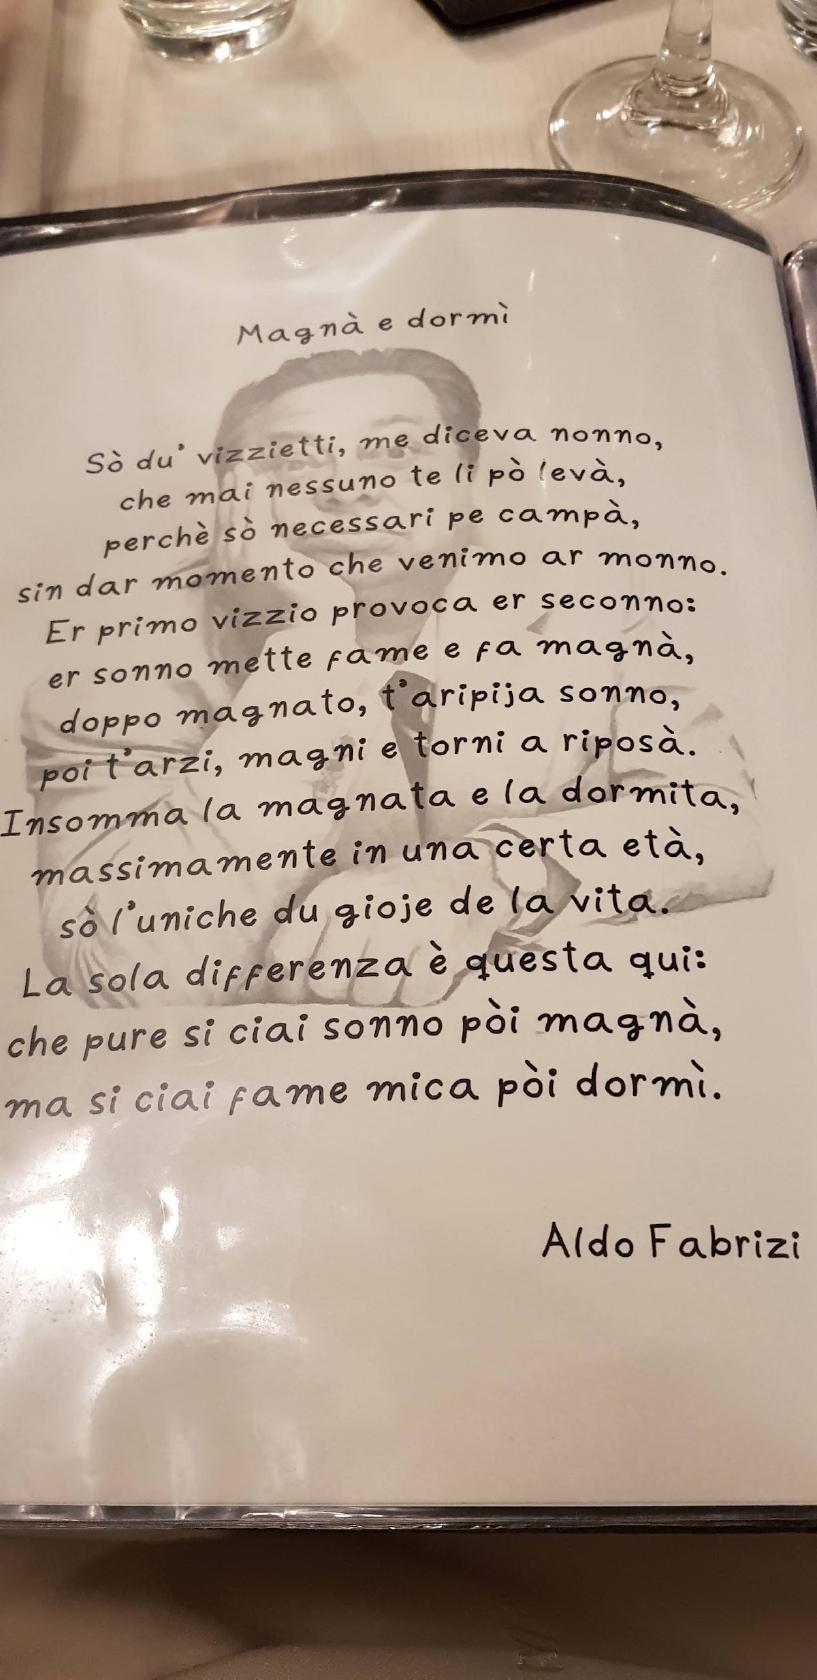 Magnà e dormì
Sò du' vizzietti, me diceva nonno,
che mai nessuno te li pò levà,
perchè sò necessari pe campà,
sin dar momento che venimo ar monno.
Er primo vizzio provoca er seconno:
er sonno mette fame e fa magnà,
doppo magnato, t'aripija sonno,
poi t'arzi, magni e torni a riposà.
Insomma la magnata e la dormita,
massimamente in una certa età,
sò l'uniche du gioje de la vita.
La sola differenza è questa qui:
che pure si ciai sonno pòi magnà,
ma si ciai fame mica pòi dormì.
Aldo Fabrizi